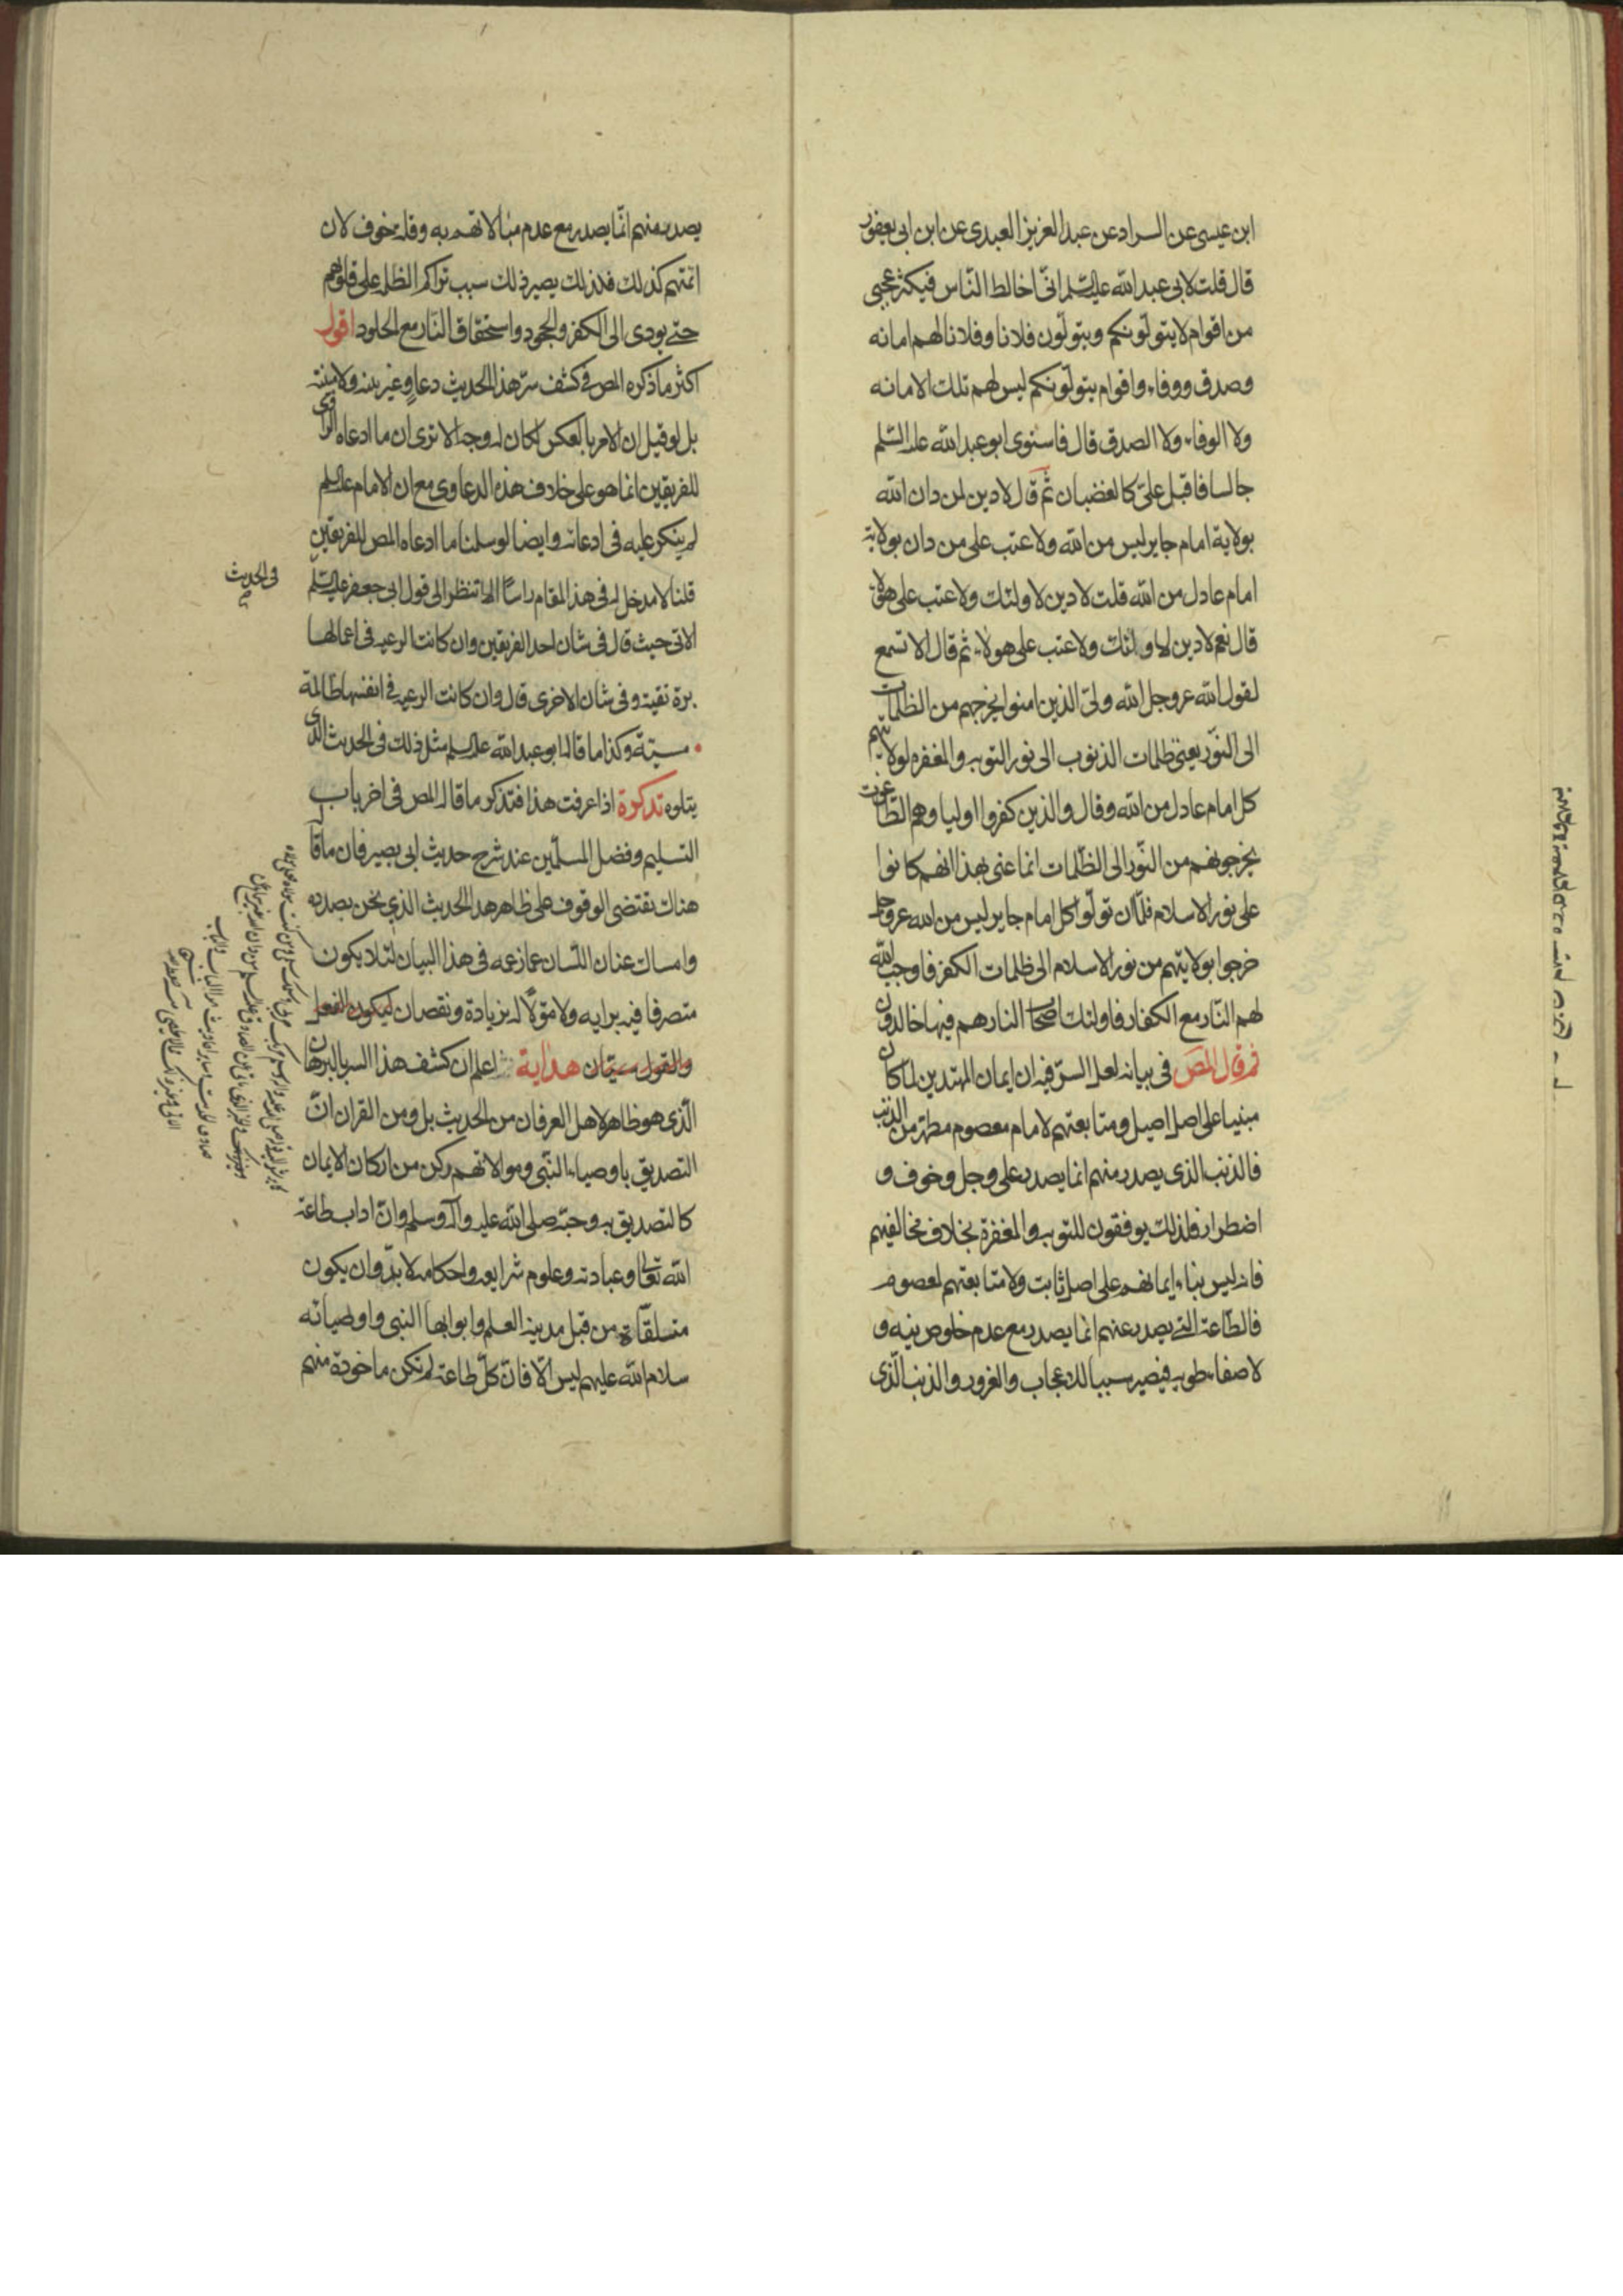 ابن عيسى عن السراد عن عبد العزيز العبدى عن ابن ابى يعفور
قال قلت لابى عبد الله عليه السلم انّى اخالط النّاس فيكثر عجبى
من اقوام لا يتولّونكم ويتولّون فلانا وفلانا لهم امانه
وصدق ووفاء واقوام يتولّونكم ليس لهم تلك الامانه
ولا الوفاء ولا الصدق قال فاستوى ابو عبد الله عليه السّلم
جالسا فاقبل علىّ كالغضبان ثمّ قال لا دين لمن دان الله
بولاية امام جاير ليس من الله ولا عتب على من دان بولاية
امام عادل من الله قلت لا دين لاولئك ولا عتب على هؤلاء
قال نعم لا دين لاولئك ولا عتب على هولاء ثم قال الا تسمع
لقول الله عز وجل الله ولىّ الذين امنوا يخرجهم من الظلمات
الى النّور يعنى ظلمات الذنوب الى نور التوبه والمغفره لولايتهم
كل امام عادل من الله وقال والذين كفروا اولياوهم الطّاغوت
يخرجونهم من النّور الى الظّلمات انما عنى بهذا انهم كانوا
على نور الاسلام فلمّا ان تولّوا كل امام جاير ليس من الله عز وجل
خرجوا بولايتهم من نور الاسلام الى ظلمات الكفر فاوجب الله
لهم النّار مع الكفار فاولئك اصحاب النار هم فيها خالدون
ثم قال المص فى بيانه لعل السرّ فيه ان ايمان المهتدين لما كان
مبنيا على اصل اصيل ومتابعتهم لامام معصوم مطهر من الذنب
فالذنب الذى يصدر منهم انما يصدر على وجل وخوف و
اضطرار فلذلك يوفقون للتوبه والمغفرة بخلاف مخالفيهم
فانه ليس بناء ايمانهم على اصل ثابت ولا متابعتهم لمعصوم
فالطّاعة التى يصدر عنهم انما يصدر مع عدم خلوص نيه و
لا صفاء طويه فيصير سببا للاعجاب والغرور والذنب الّذى
يصدر منهم انّما يصدر مع عدم مبالاتهم به وقلة خوف لان
ائمتهم كذلك فلذلك يصير ذلك سبب تراكم الظلم على قلوبهم
حتى يودى الى الكفر والجحود واستحقاق النّار مع الخلود اقول
اكثر ما ذكره المص فى كشف سرّ هذا الحديث دعاو غير بينه ولا مبينه
بل لو قيل ان الامر بالعكس لكان له وجه الا ترى ان ما ادعاه الراوى
للفريقين انما هو على خلاف هذه الدعاوى مع ان الامام عليه السلم
لم ينكر عليه فى ادعائه وايضا لو سلنا ما ادعاه المص للفريقين
قلنا لا مدخل له فى هذا المقام راسًا الا تنظر الى قول ابى جعفر عليه السّلم
فى الحديث
الاتى حيث قال فى شان احد الفريقين وان كانت الرعيه فى اعمالها
برة تقية وفى شان الاخرى قال وان كانت الرعيه فى انفسها ظالمة
مسيئة وكذا ما قاله ابو عبد الله عليه السلم مثل ذلك فى الحديث الذى
يتلوه تذكرة اذا عرفت هذا فتذكر ما قاله المص فى اخر باب
التسليم وفضل المسلّمين عند شرح حديث ابى بصير فان ما قال
هناك تقتضى الوقوف على ظاهر هذا الحديث الذى نحن بصدده
وامساك عنان اللّسان عما زعمه فى هذا البيان لئلا يكون
متصرفا فيه برايه ولا مؤوّلا له بزيادة ونقصان ليكون الفعل
والقول سيّان هداية اعلم ان كشف هذا السر بالبرهان
الّذى هو ظاهر لاهل العرفان من الحديث بل ومن القران انّ
التصديق باوصياء النّبى وموالاتهم ركن من اركان الايمان
كالتصديق به وحبّه صلى الله عليه وآله وسلم وانّ اداب طاعة
الله تعالى وعبادته وعلوم شرايعه واحكامه لا بدّ وان يكون
متلقّاة من قبل مدينة العلم وابوابها النبى واوصيائه
سلام الله عليهم ليس الّا فانّ كلّ طاعة لم تكن ماخوذة منهم